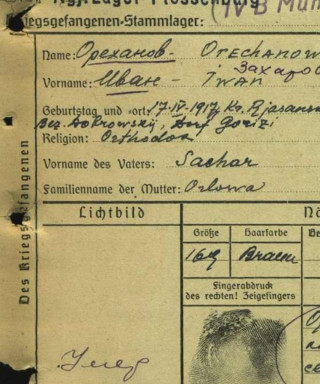 Kgf. Lager Flossenbürg
Kriegsgefangenen-Stammlager: IV B Müh
Name: Ореханов - Orechanow
Захаро
Vorname: Иван - Iwan
Geburtstag und -ort: 17.IV.1917, Kr. Rjasansk
Bez. Pokrowskij, Dorf Gorizi
Religion: Orthodox
Vorname des Vaters: Sachar
Familienname der Mutter: Orlowa
Des Kriegsgefangenen
Lichtbild
Größe
Haarfarbe
Braun
Fingerabdruck
des rechten! Zeigefingers
Умер